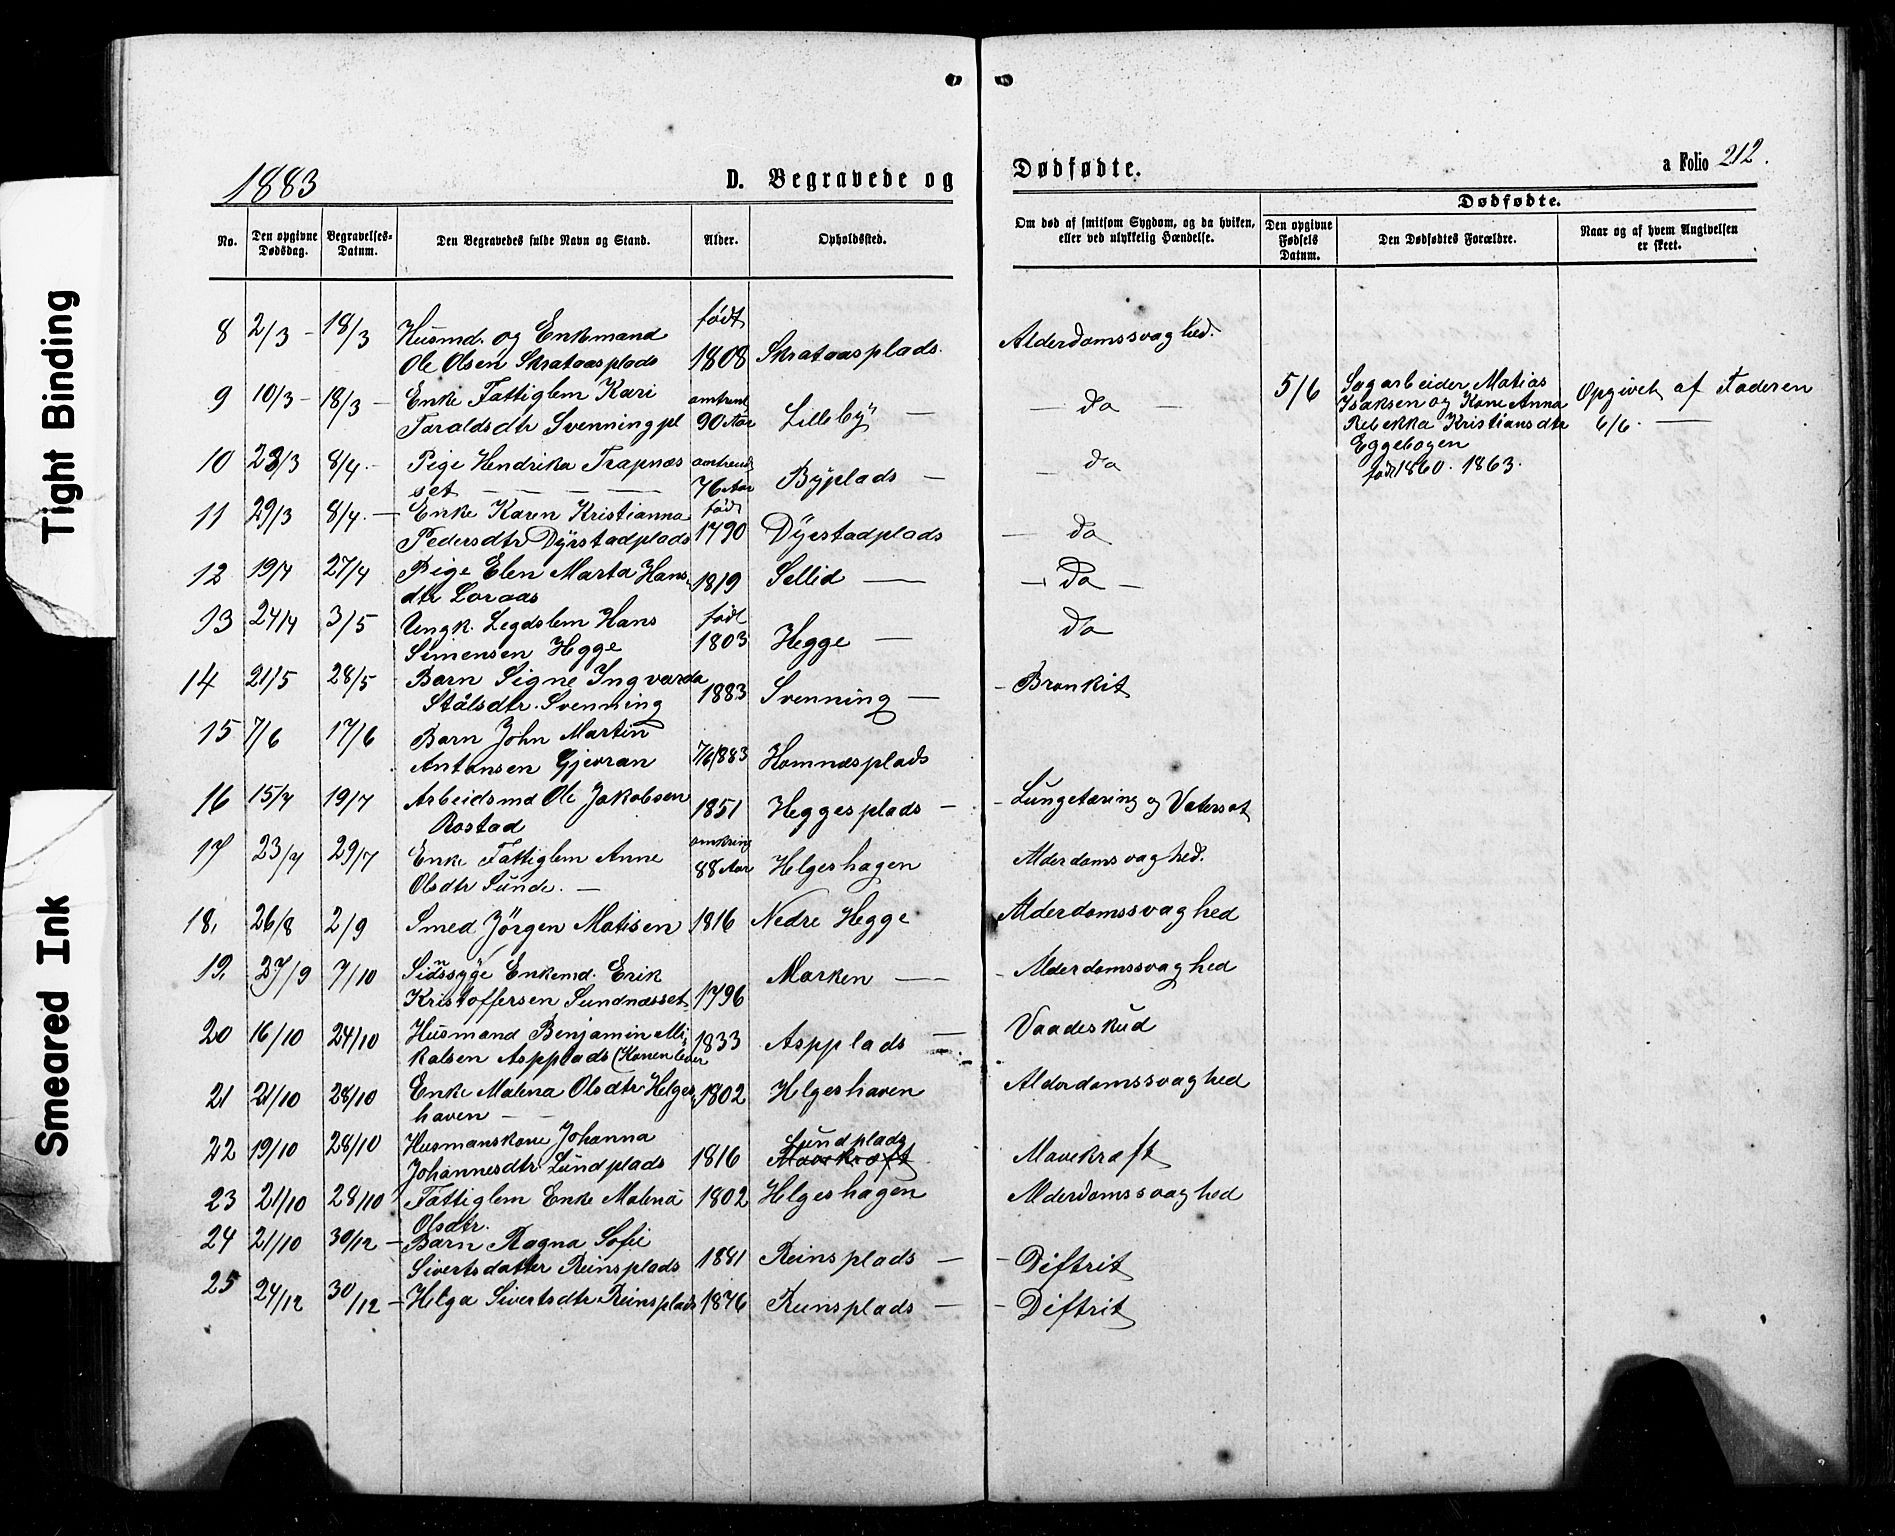 Tight Binding
Smeared Ink
1883
D. Begravede og Dødfødte.
a Folio 212.
No.
Den opgivne Dødsdag.
Begravelses-Datum.
Den Begravedes fulde Navn og Stand.
Alder.
Opholdssted.
Om død af smitsom Sygdom, og da hvilken,
eller ved ulykkelig Hændelse.
Dødfødte.
Den opgivne Fødsels Datum.
Den Dødfødtes Forældre.
Naar og af hvem Angivelsen er skeet.
8 2/3 - 18/3 Husmd. og Enkemand født
Ole Olsen Skrataasplads 1808 Skrataasplads. Alderdomssvaghed.
9 10/3 - 18/3 - Enke Fattiglem Kari omtrent
Taraldsdtr Svenningpl 90 Aar Lilleby — — do —
5/6 Sagarbeider Matias
Isaksen og Kone Anna
Rebekka Kristiansdtr
Eggebogen
født 1860. 1863.
Opgivet af Faderen
6/6. —
10 23/3 8/4. - Pige Hendrika Trapnæs omtrent
set — — — 76 Aar Byplads — — do
11 29/3 8/4. - Enke Karen Kristianna født
Pedersdtr Dyrstadplads 1790 Dyrstadplads — do
12 19/4 27/4 Pige Elen Marta Hans-
dtr Loraas 1819 Sellid — — Do —
13 24/4 3/5 Ungk. Legdslem Hans født
Simensen Hegge 1803 Hegge — do
14 21/5 28/5 Barn Signe Ingvarda
Stålsdtr. Svenning 1883 Svenning — - Bronkit
15 7/6 17/6 Barn John Martin
Antonsen Gjevran 7/6 1883 Homnæsplads
16 15/7 19/7 Arbeidsmd Ole Jakobsen
Rostad 1851 Heggesplads — - Lungetæring og Vatersot
17 23/7 29/7 Enke Fattiglem Anne omkring
Olsdtr Sunde. — 88 Aar Helgeshagen Alderdomsvaghed.
18, 26/8 2/9 Smed Jörgen Matisen 1816 Nedre Hegge Alderdomssvaghed
19, 27/9 7/10 Sidnssyge Enkemd. Erik
Kristoffersen Sundnæsset 1796 Marken — - Alderdomssvaghed
20 16/10 24/10 Husmand Benjamin Mi-
kalsen Aspplads (Konen lever 1833 Aspplads — Vaadeskud
21 21/10 28/10 Enke Malena Olsdtr Helges
haven — — 1802 Helgeshaven Alderdomssvaghed
22 19/10 28/10 Husmanskone Johanna Lundplads
Johannesdtr Lundplads 1816 Mavekræft Mavekræft
23 21/10 28/10 Fattiglem Enke Malena
Olsdtr. 1802 Helgeshagen Alderdomssvaghed
24 21/10 30/12 - Barn Ragna Sofie
Sivertsdatter Reinsplads 1881 Reinsplads — - Diftrit
25 24/12 30/12 - Helga Sivertsdtr Reinsplads 1876 Reinsplads — - Diftrit